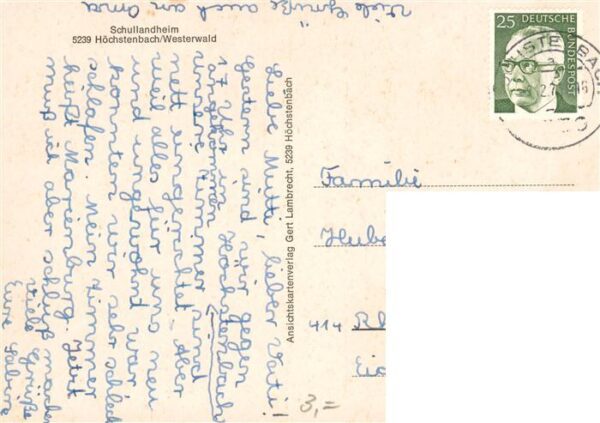 Schullandheim
5239 Höchstenbach/Westerwald
Viele Grüße auch an Oma
Liebe Mutti, lieber Vati!
Gestern sind wir gegen
17 Uhr in Höchstenbach
angekommen.
unsere Zimmer sind
nett eingerichtet. Aber
weil alles für uns neu
und ungewohnt war
konnten wir sehr schlecht
schlafen. Mein Zimmer
heißt Marienburg. Jetzt
muß ich aber schluß machen
Viele Grüße
Eure Sabine
Ansichtskartenverlag Gert Lambrecht, 5239 Höchstenbach
25 DEUTSCHE
BUNDESPOST
Familie
Hube
414 Rh
3,=